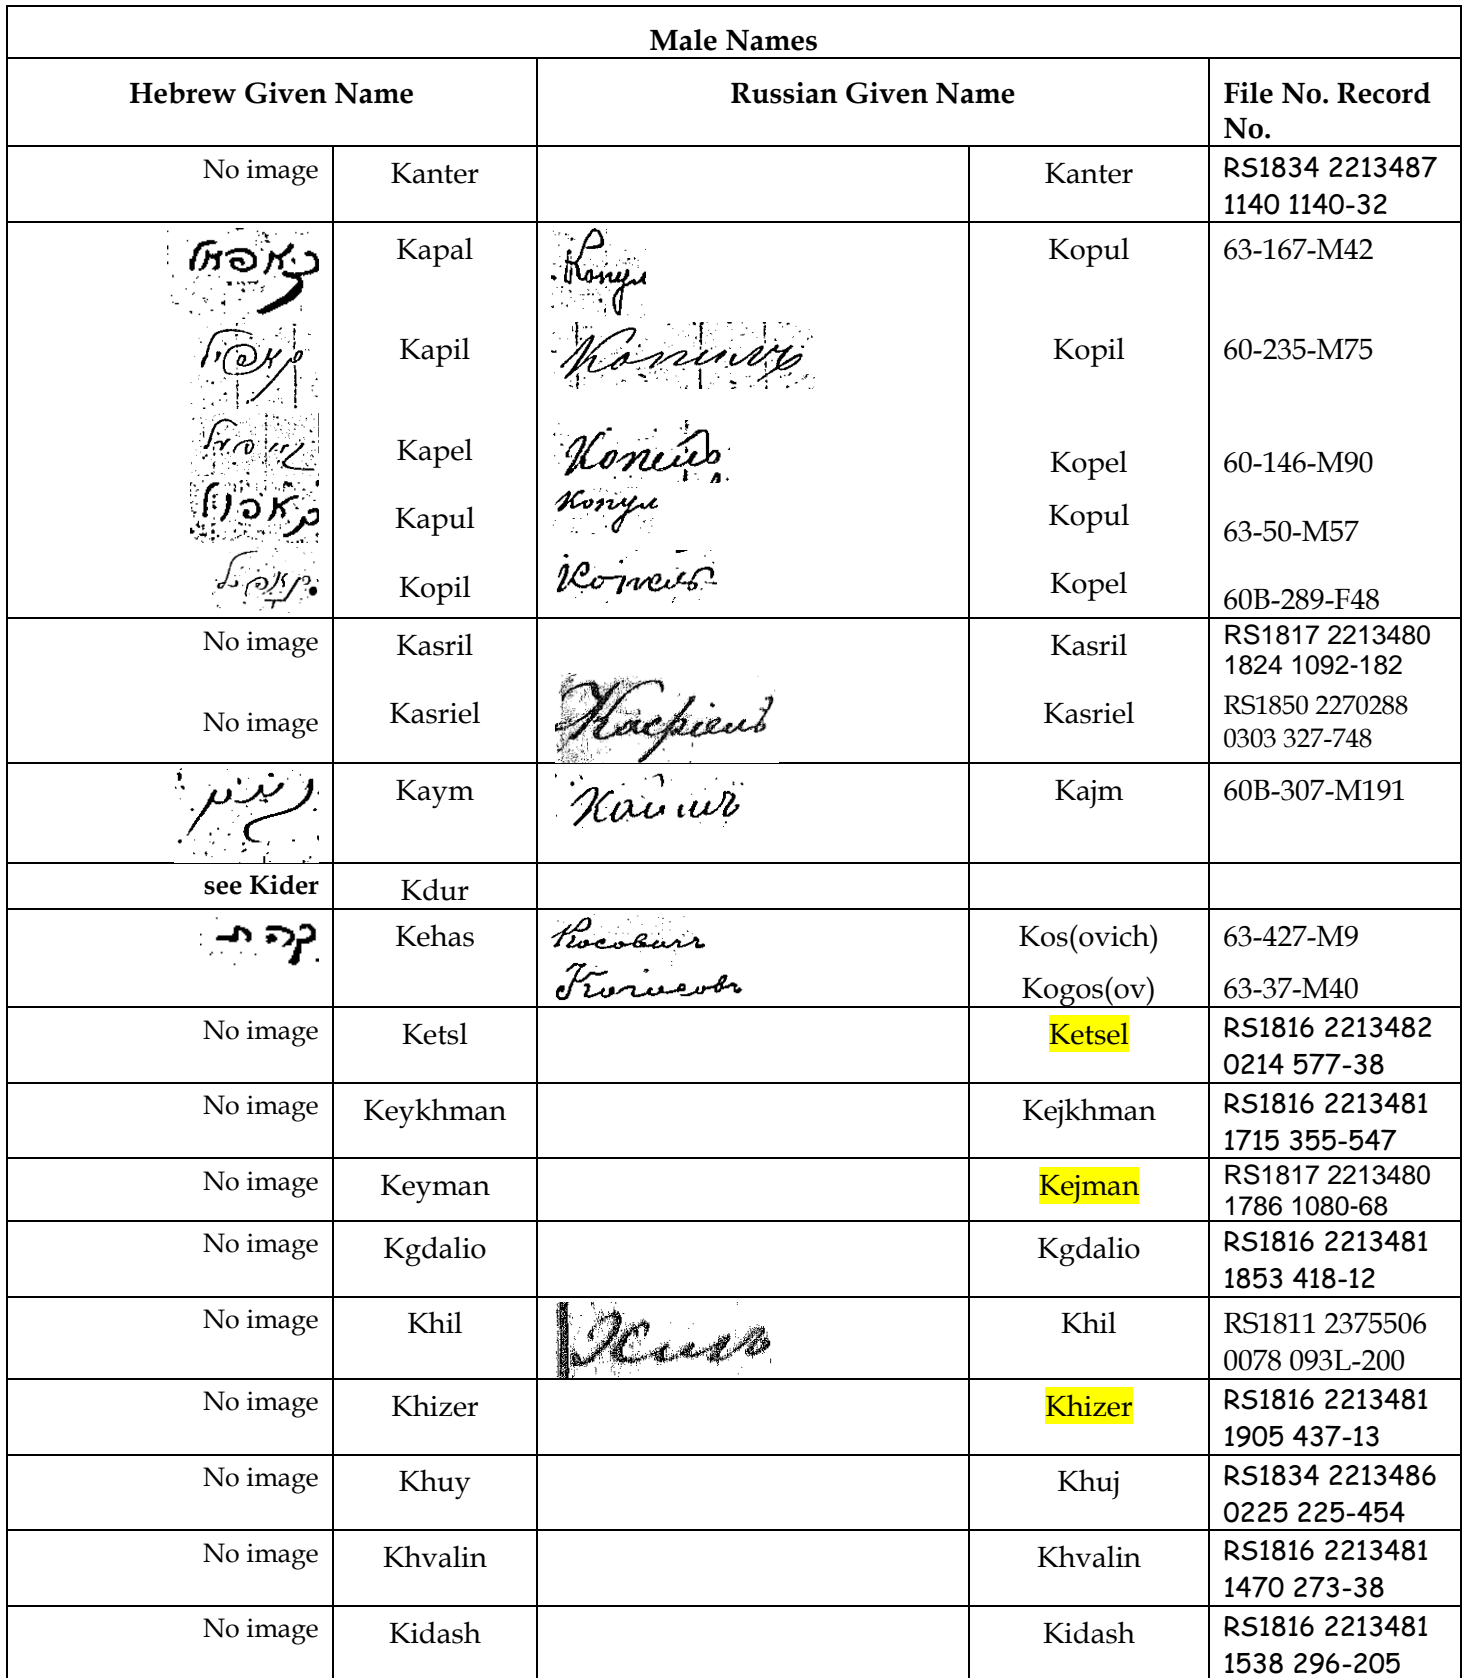 Male Names
Hebrew Given Name Russian Given Name File No. Record
No.
No image Kanter Kanter RS1834 2213487
1140 1140-32
קאפאל Kapal Копул Kopul 63-167-M42
קאפיל Kapil Копиль Kopil 60-235-M75
Kapel Копель Kopel 60-146-M90
קאפול Kapul Копул Kopul 63-50-M57
קאפיל Kopil Копель Kopel 60B-289-F48
No image Kasril Kasril RS1817 2213480
1824 1092-182
No image Kasriel Касріель Kasriel RS1850 2270288
0303 327-748
קיים Kaym Каимъ Kajm 60B-307-M191
see Kider Kdur
קהת Kehas Kos(ovich) 63-427-M9
Kogos(ov) 63-37-M40
No image Ketsl Ketsel RS1816 2213482
0214 577-38
No image Keykhman Kejkhman RS1816 2213481
1715 355-547
No image Keyman Kejman RS1817 2213480
1786 1080-68
No image Kgdalio Kgdalio RS1816 2213481
1853 418-12
No image Khil Хиль Khil RS1811 2375506
0078 093L-200
No image Khizer Khizer RS1816 2213481
1905 437-13
No image Khuy Khuj RS1834 2213486
0225 225-454
No image Khvalin Khvalin RS1816 2213481
1470 273-38
No image Kidash Kidash RS1816 2213481
1538 296-205